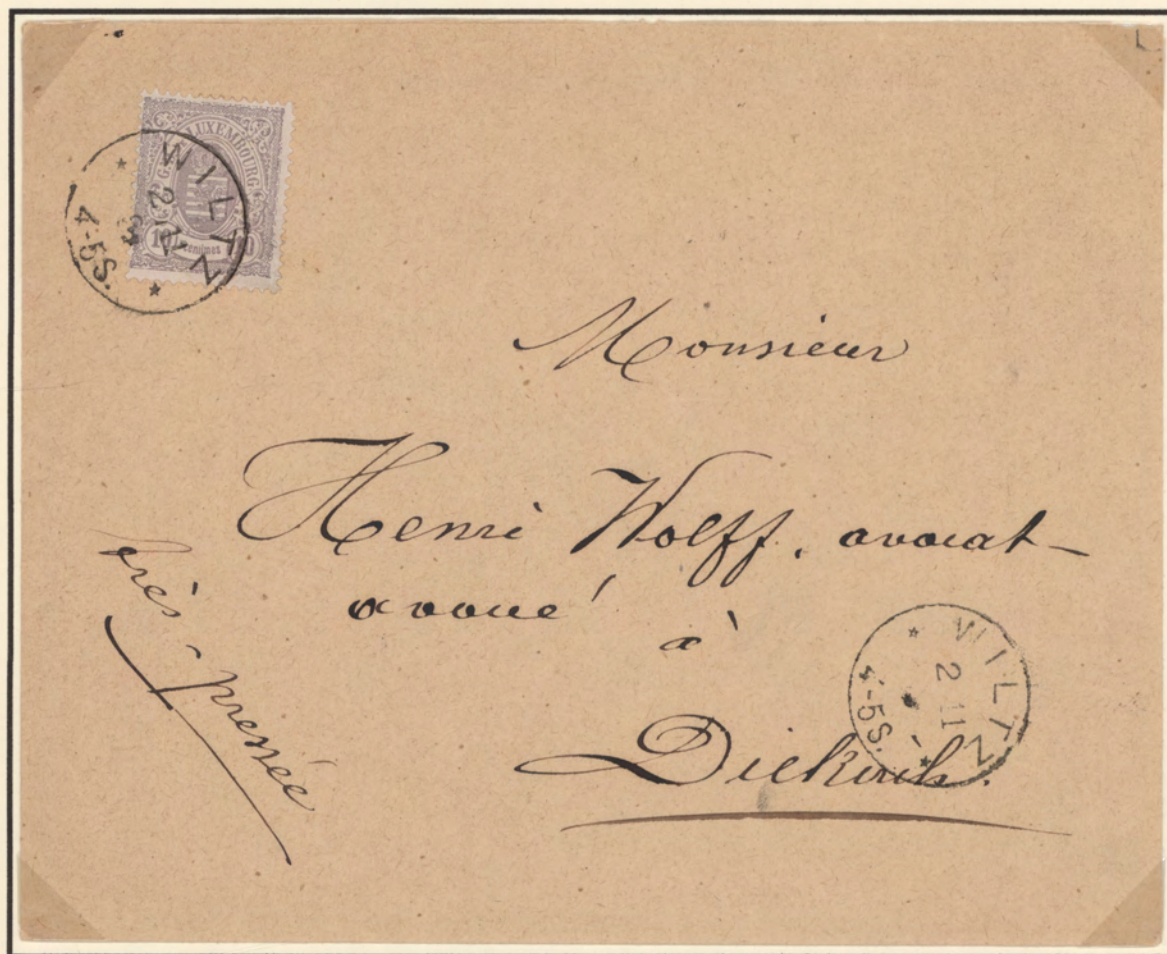 G. D. LUXEMBOURG
10 Centimes 10
WILTZ
2 11
4-5S.
Monsieur
Henri Wolff, avocat-
avoué
à
Diekirch.
très-pressée
WILTZ
2 11
4-5S.